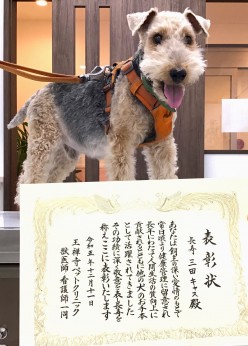 表彰状
長寿 三田 キャス 殿
あなたは飼主の深い愛情のもとで
常日頃より健康管理に留意され
長年にわたり人間生活の質向上に
貢献されるとともに他の犬のお手本
として活躍されてきました
その功績に深く敬意を表し長寿を
称えここに表彰いたします
令和五年十二月十一日
王禅寺ペットクリニック
獣医師 看護師一同